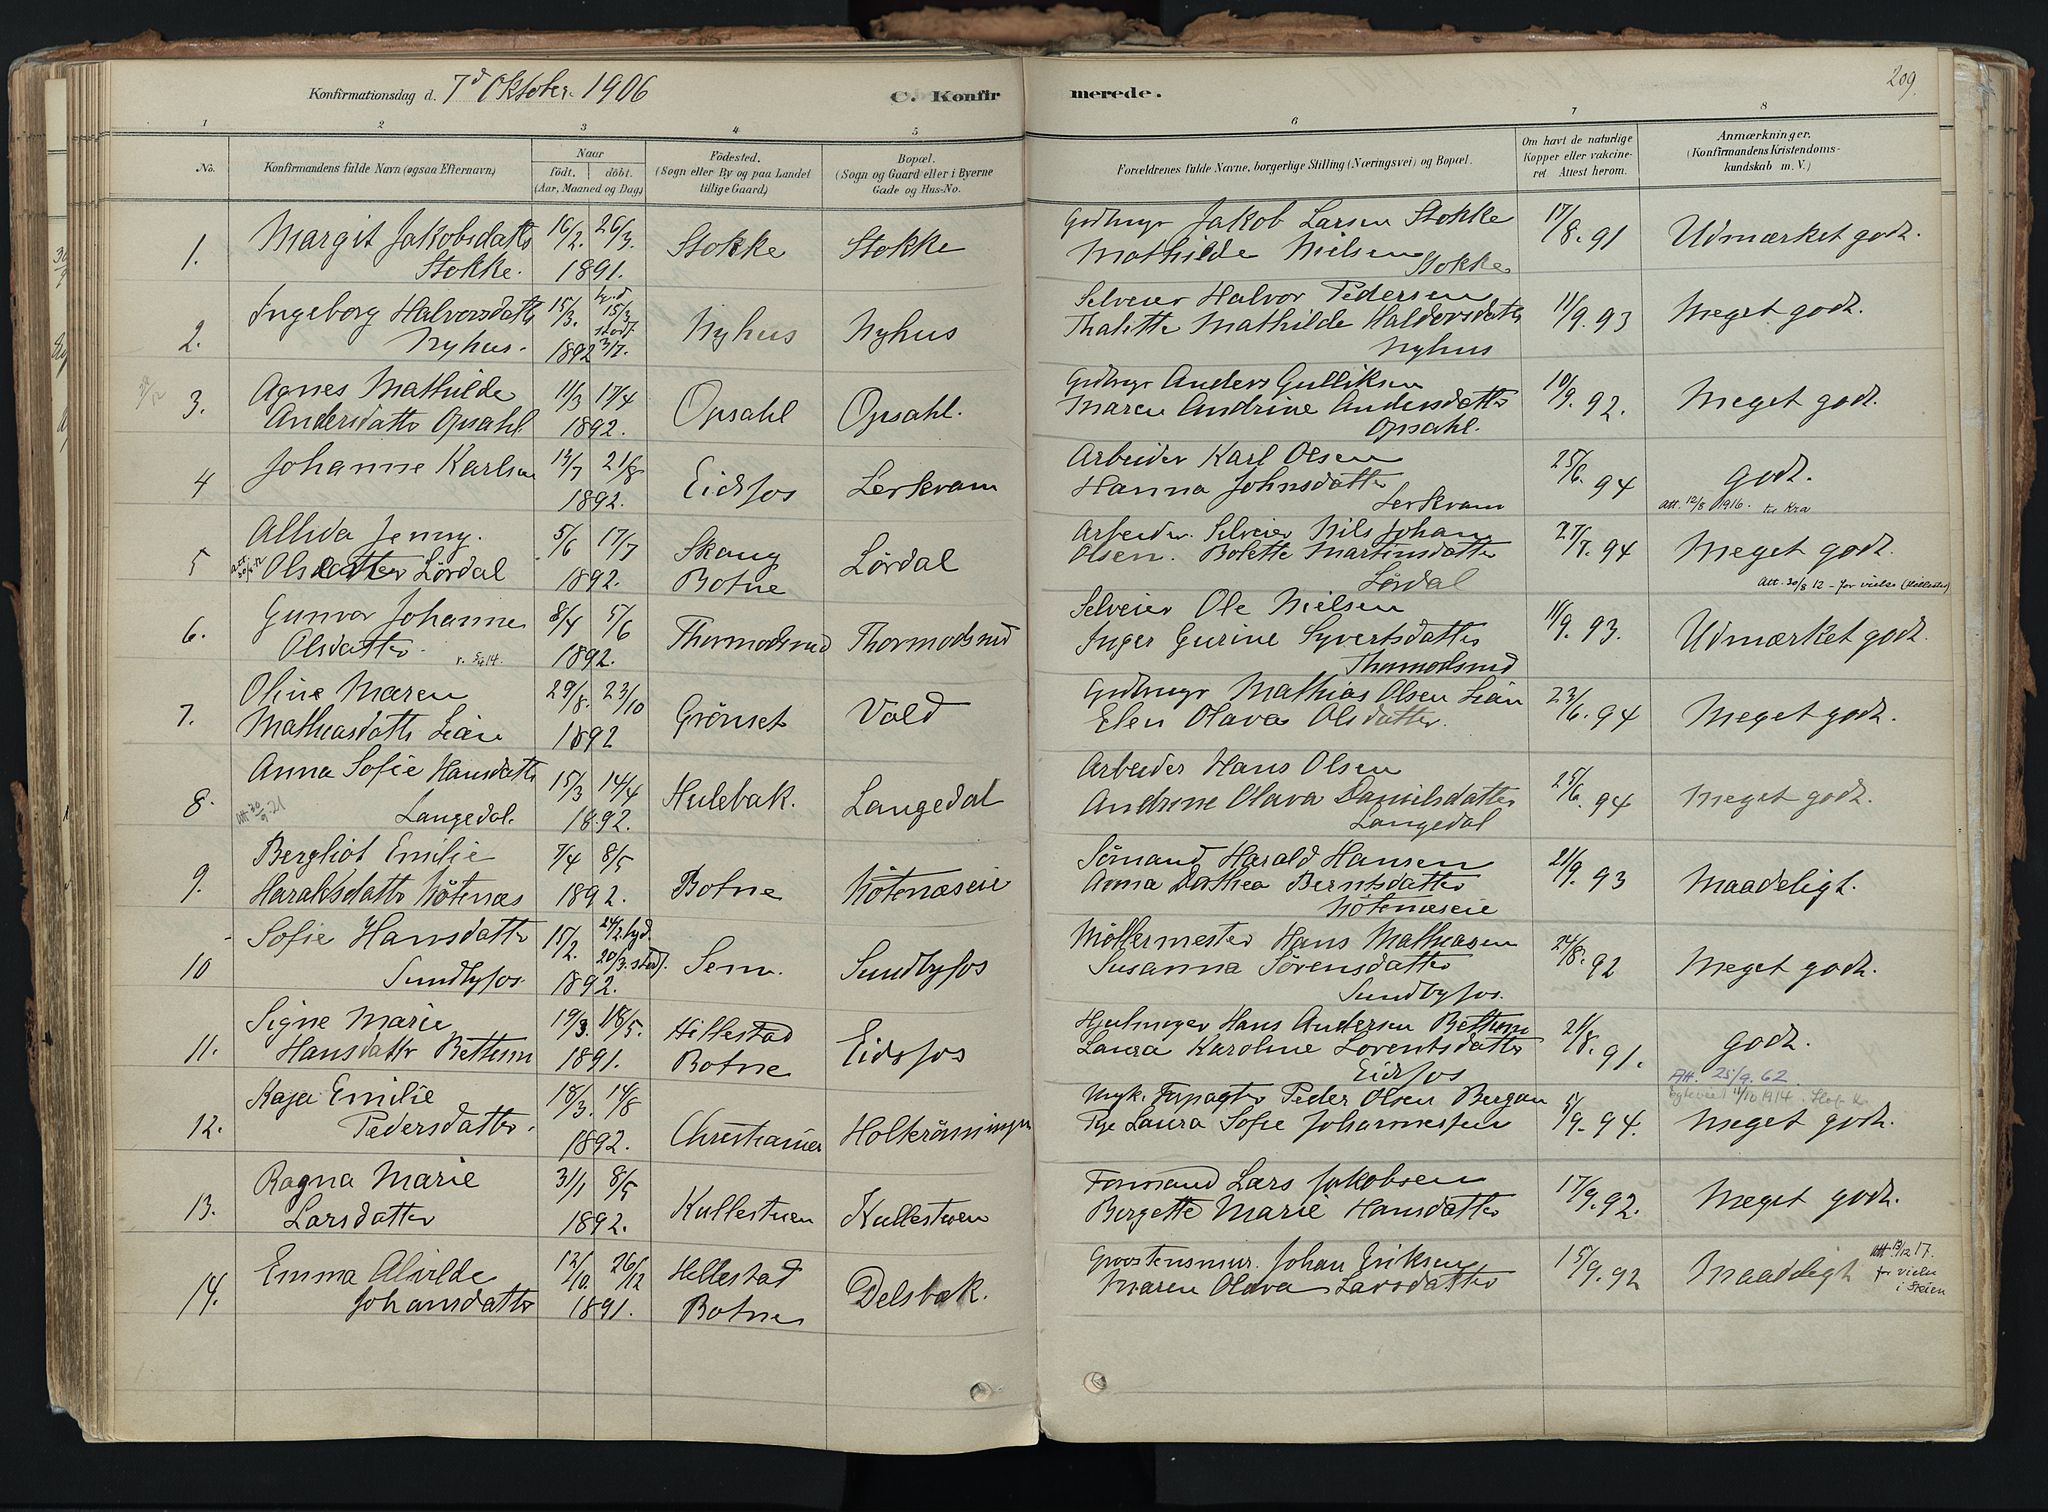 Konfirmationsdag d. 7d Oktober 1906
C. Konfir merede.
209.
1 2 3 4 5 6 7 8
No. Konfirmandens fulde Navn (ogsaa Efternavn) Naar født. døbt. (Aar, Maaned og Dag) Fødested. (Sogn eller By og paa Landet tillige Gaard) Bopæl. (Sogn og Gaard eller i Byerne Gade og Hus-No. Forældrenes fulde Navne, borgerlige Stilling (Næringsvei) og Bopæl. Om havt de naturlige Kopper eller vakcineret. Attest herom. Anmærkninger. (Konfirmandens Kristendomskundskab m. V.)
1. Margit Jakobsdatter Stokke. 16/2. 26/3. 1891. Stokke Stokke Jakob Larsen Stokke Mathilde Nielsen Stokke 17/8. 91 Udmærket godt.
2. Ingeborg Halvorsdatter Nyhus. 15/3. 15/3 stadf. 3/7. 1892 Nyhus Nyhus Selveier Halvor Pedersen Thalette Mathilde Haldorsdatter Nyhus 11/9. 93 Meget godt.
3. Agnes Mathilde Andersdatter Opsahl. 11/3 17/4 1892. Opsahl Opsahl. Anders Gulliksen Maren Andrine Andersdatter Opsahl. 10/9. 92. Meget godt.
4 Johanne Karlsen 13/7 21/8 1892. Eidsfos Lerkvam Arbeider Karl Olsen Hanna Johnsdatter Lerkvam 25/6. 94 godt. Att. 12/8 1916. til Kra
5 Allida Jenny. Olsdatter Lørdal 5/6 17/7 1892. Skaug Botne Lørdal Arbeider. Selveier Nils Johan Olsen. Bolette Martinsdatter Lørdal 27/7. 94 Meget godt. Att. 30/8 12 - for vielse (Hillestad)
6. Gunvor Johanne Olsdatter. 8/4 5/6 1892. Thormodsrud Thormodsrud Selveier Ole Nielsen Inger Gurine Syvertsdatter Thormodsrud 11/9. 93. Udmærket godt.
7. Oline Maren Mathiasdatter Liän 29/8. 23/10 1892 Grönset Vold Mathias Olsen Liän Elen Olava Olsdatter. 23/6. 94 Meget godt.
8. Anna Sofie Hansdatter Langedal. Att. 30/9.21 15/3 14/4 1892. Hulebak. Langedal Arbeider Hans Olsen Andrine Olava Danielsdatter Langedal 25/6. 94 Meget godt.
9. Bergliot Emilie Haraldsdatter Nötenæs 7/4 8/5 1892. Botne Nötenæseie Sømand Harald Hansen Anna Dorthea Berntsdatter Nötenæseie 21/9. 93 Maadeligt.
10 Sofie Hansdatter Sundbyfos. 15/2. 24/2 hjd. 20/3. stadf. 1892. Sem. Sundbyfos Möllermester Hans Mathiasen Susanna Sörensdatter Sundbyfos. 24/8. 92 Meget godt.
11. Signe Marie Hansdatter Bettum 19/3. 18/5. 1891. Hillestad Botne Eidsfos Hjulmager Hans Andersen Bettum Laura Karoline Lorentsdatter Eidsfos 21/8. 91. godt. Att. 25/9. 62
12. Kaja Emilie Pedersdatter. 18/3. 14/8 1892. Christiania Holtrönningen Peder Olsen Bergan Laura Sofie Johannessen 5/9. 94. 11/10 1914. Meget godt.
13. Ragna Marie Larsdatter 31/1 8/5 1892. Kullestuen Kullestuen Formand Lars Jakobsen Bergette Marie Hansdatter 17/9. 92. Meget godt.
14. Emma Alvilde Johansdatter 12/10. 26/12 1891. Hillestad Botne Delsbæk. Johan Eriksen Maren Olava Larsdatter 15/9. 92 Maadeligt Att 13/12 17. for vielse i Skien